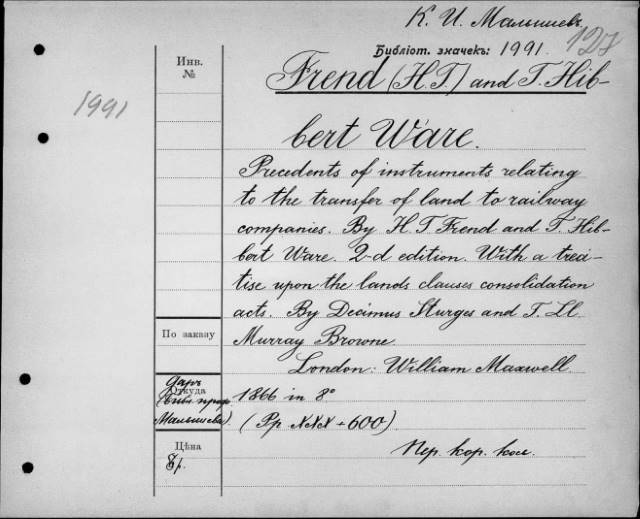 К. И. Малышевъ
Библіот. значекъ: 1991. 127
Инв.
№
1991
Frend (H. T.) and T. Hib-
bert Ware.
Precedents of instruments relating
to the transfer of land to railway
companies. By H. T. Frend and T. Hib-
bert Ware. 2-d edition. With a trea-
tise upon the lands clauses consolidation
acts. By Decimus Sturges and T. Ll.
По заказу
Murray Browne.
London: William Maxwell
Откуда
даръ
(библ. проф.
Малышева)
1866 in 8°
(Pp XXX + 600)
Цѣна
8р.
Пер. кор. кож.